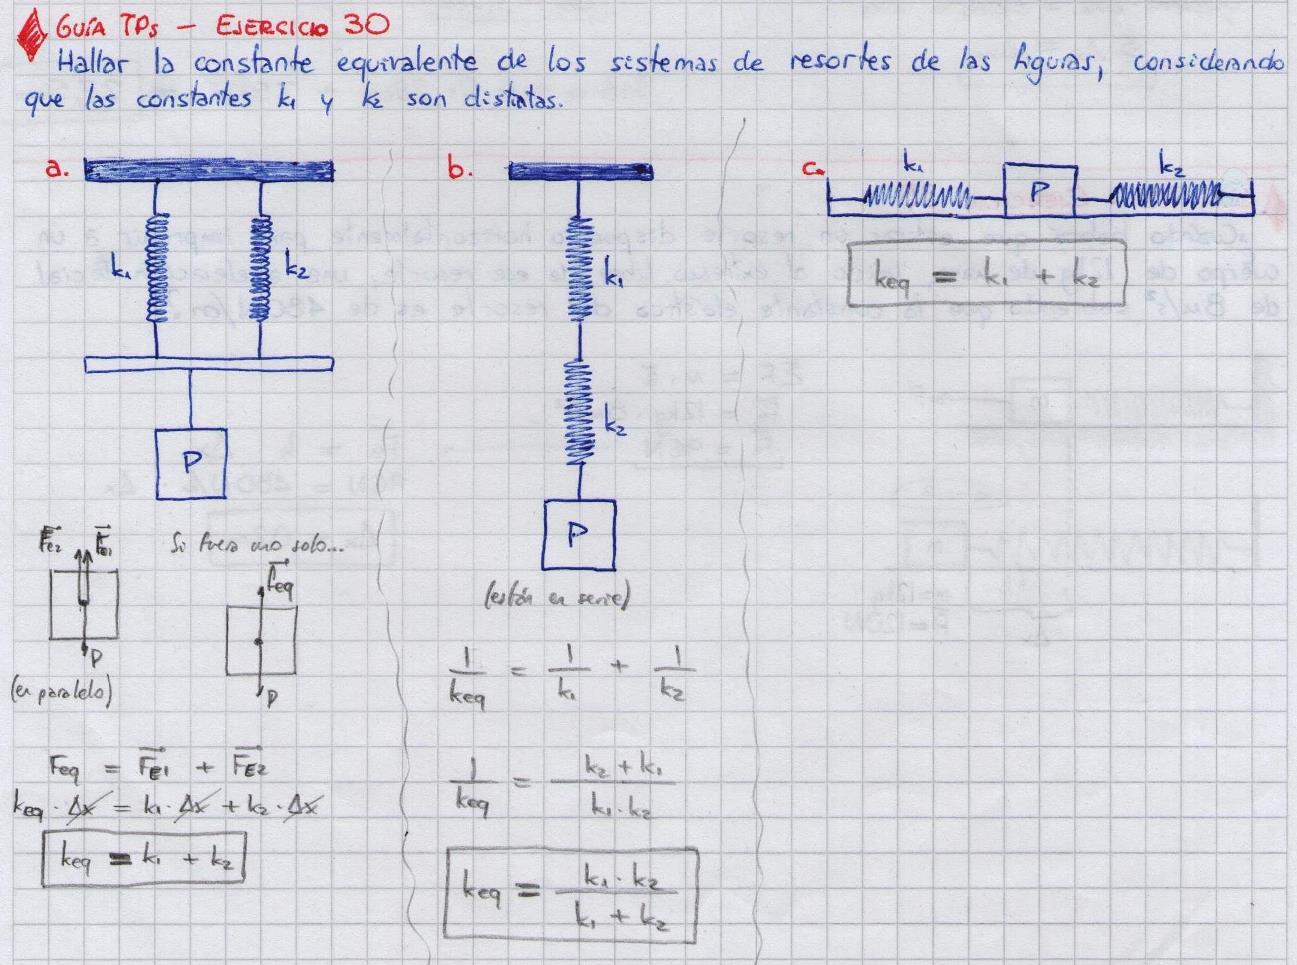 GUÍA TPs — EJERCICIO 30
Hallar la constante equivalente de los sistemas de resortes de las figuras, considerando
que las constantes k₁ y k₂ son distintas.
a.
k₁
k₂
P
FE2
FE1
P
(en paralelo)
Si fuera uno solo...
Feq
P
Feq = FE1 + FE2
keq · Δx = k₁ · Δx + k₂ · Δx
keq = k₁ + k₂
b.
k₁
k₂
P
(están en serie)
1/keq = 1/k₁ + 1/k₂
1/keq = (k₂ + k₁)/(k₁ · k₂)
keq = (k₁ · k₂)/(k₁ + k₂)
c.
k₁
P
k₂
keq = k₁ + k₂